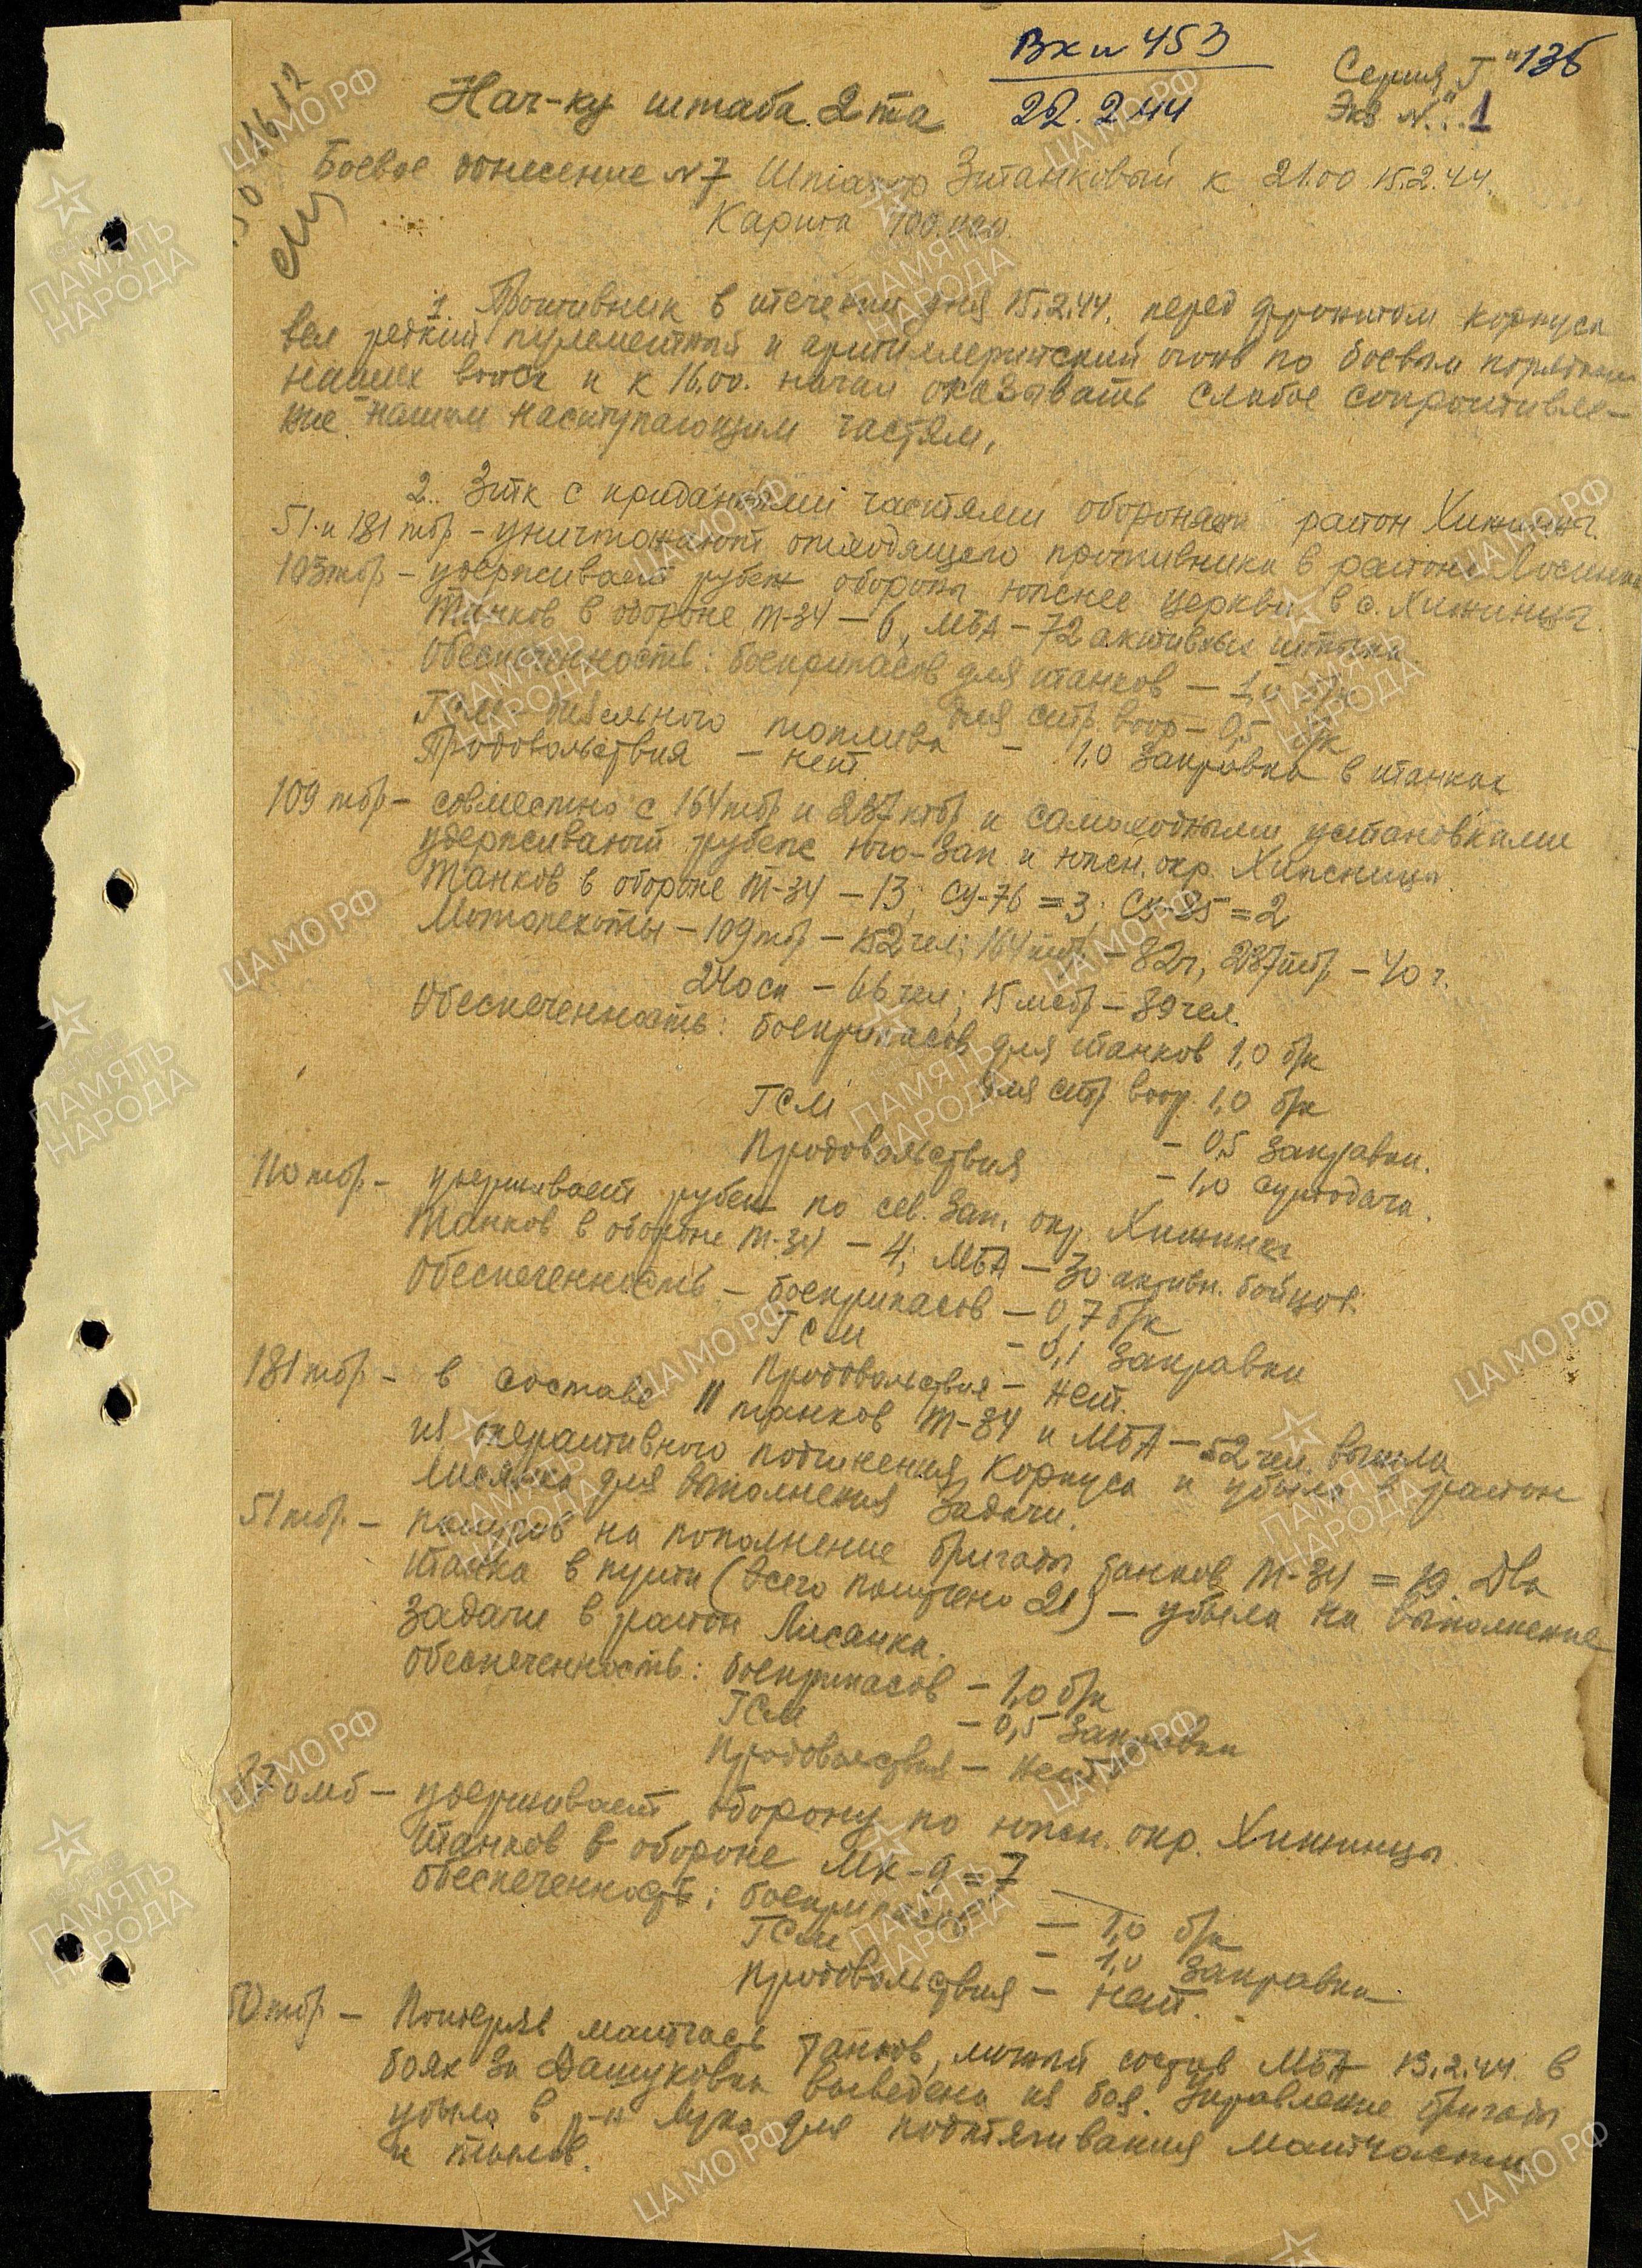 Вх № 453
22.2.44
Серия "Г" 136
Экз. № 1
Нач-ку штаба 2 та
Боевое донесение № 7 Штакор 3 танковый к 21.00 15.2.44.
Карта 100.000.
1. Противник в течении дня 15.2.44. перед фронтом корпуса
вел редкий пулеметный и артиллеритский огонь по боевым порядкам
наших войск и к 16.00. начал оказывать слабое сопротивле-
ние нашим наступающим частям,
2. 3 тк с приданными частями обороняет район Хижинцы.
51 и 181 тбр – уничтожают отходящего противника в районе Лисянка
103 тбр – удерживает рубеж обороны южнее церкви в с. Хижинцы.
Танков в обороне Т-34 – 6, МБА – 72 активных штыка
Обеспеченность: боеприпасов для танков – 1,0 б/к
для стр. воор – 0,5 б/к
ГСМ – дизельного топлива – 1,0 заправка в танках
Продовольствия – нет.
109 тбр – совместно с 164 тбр и 237 тбр и самоходными установками
удерживают рубеж юго-зап и южн. окр. Хижинцы.
Танков в обороне Т-34 – 13; СУ-76 = 3; СУ-85 = 2
Мотопехоты – 109 тбр – 152 чел; 164 тбр – 82 ч, 237 тбр – 40 ч.
240 сп – 66 чел; 15 мсбр – 89 чел.
Обеспеченность: боеприпасов для танков 1,0 б/к
для стр. воор. 1,0 б/к
ГСМ – 0,5 заправки.
Продовольствия – 1,0 сутодача.
110 тбр – удерживает рубеж по сев. зап. окр. Хижинцы
Танков в обороне Т-34 – 4; МБА – 30 активн. бойцов.
Обеспеченность – боеприпасов – 0,7 б/к
ГСМ – 0,1 заправки
Продовольствия – нет.
181 тбр – в составе 11 танков Т-34 и МБА – 52 чел. вышла
из оперативного подчинения корпуса и убыла в район
Лисянка для выполнения задачи.
51 тбр. – получив на пополнение бригады танков Т-34 = 19. Два
танка в пути (всего получено 21) – убыла на выполнение
задачи в район Лисянка.
Обеспеченность: боеприпасов – 1,0 б/к
ГСМ – 0,5 заправки
Продовольствия – нет
удерживает оборону по южн. окр. Хижинцы
Танков в обороне Мк-9 = 7
Обеспеченность: боеприпасов – 1,0 б/к
ГСМ – 1,0 заправка
Продовольствия – нет.
50 тбр – Потеряв матчасть танков, личный состав МБА 13.2.44. в
боях за Дашуковка выведена из боя. Управление бригады
убыло в р-н для подтягивания матчасти
и тылов.
ЦАМО РФ
ПАМЯТЬ НАРОДА